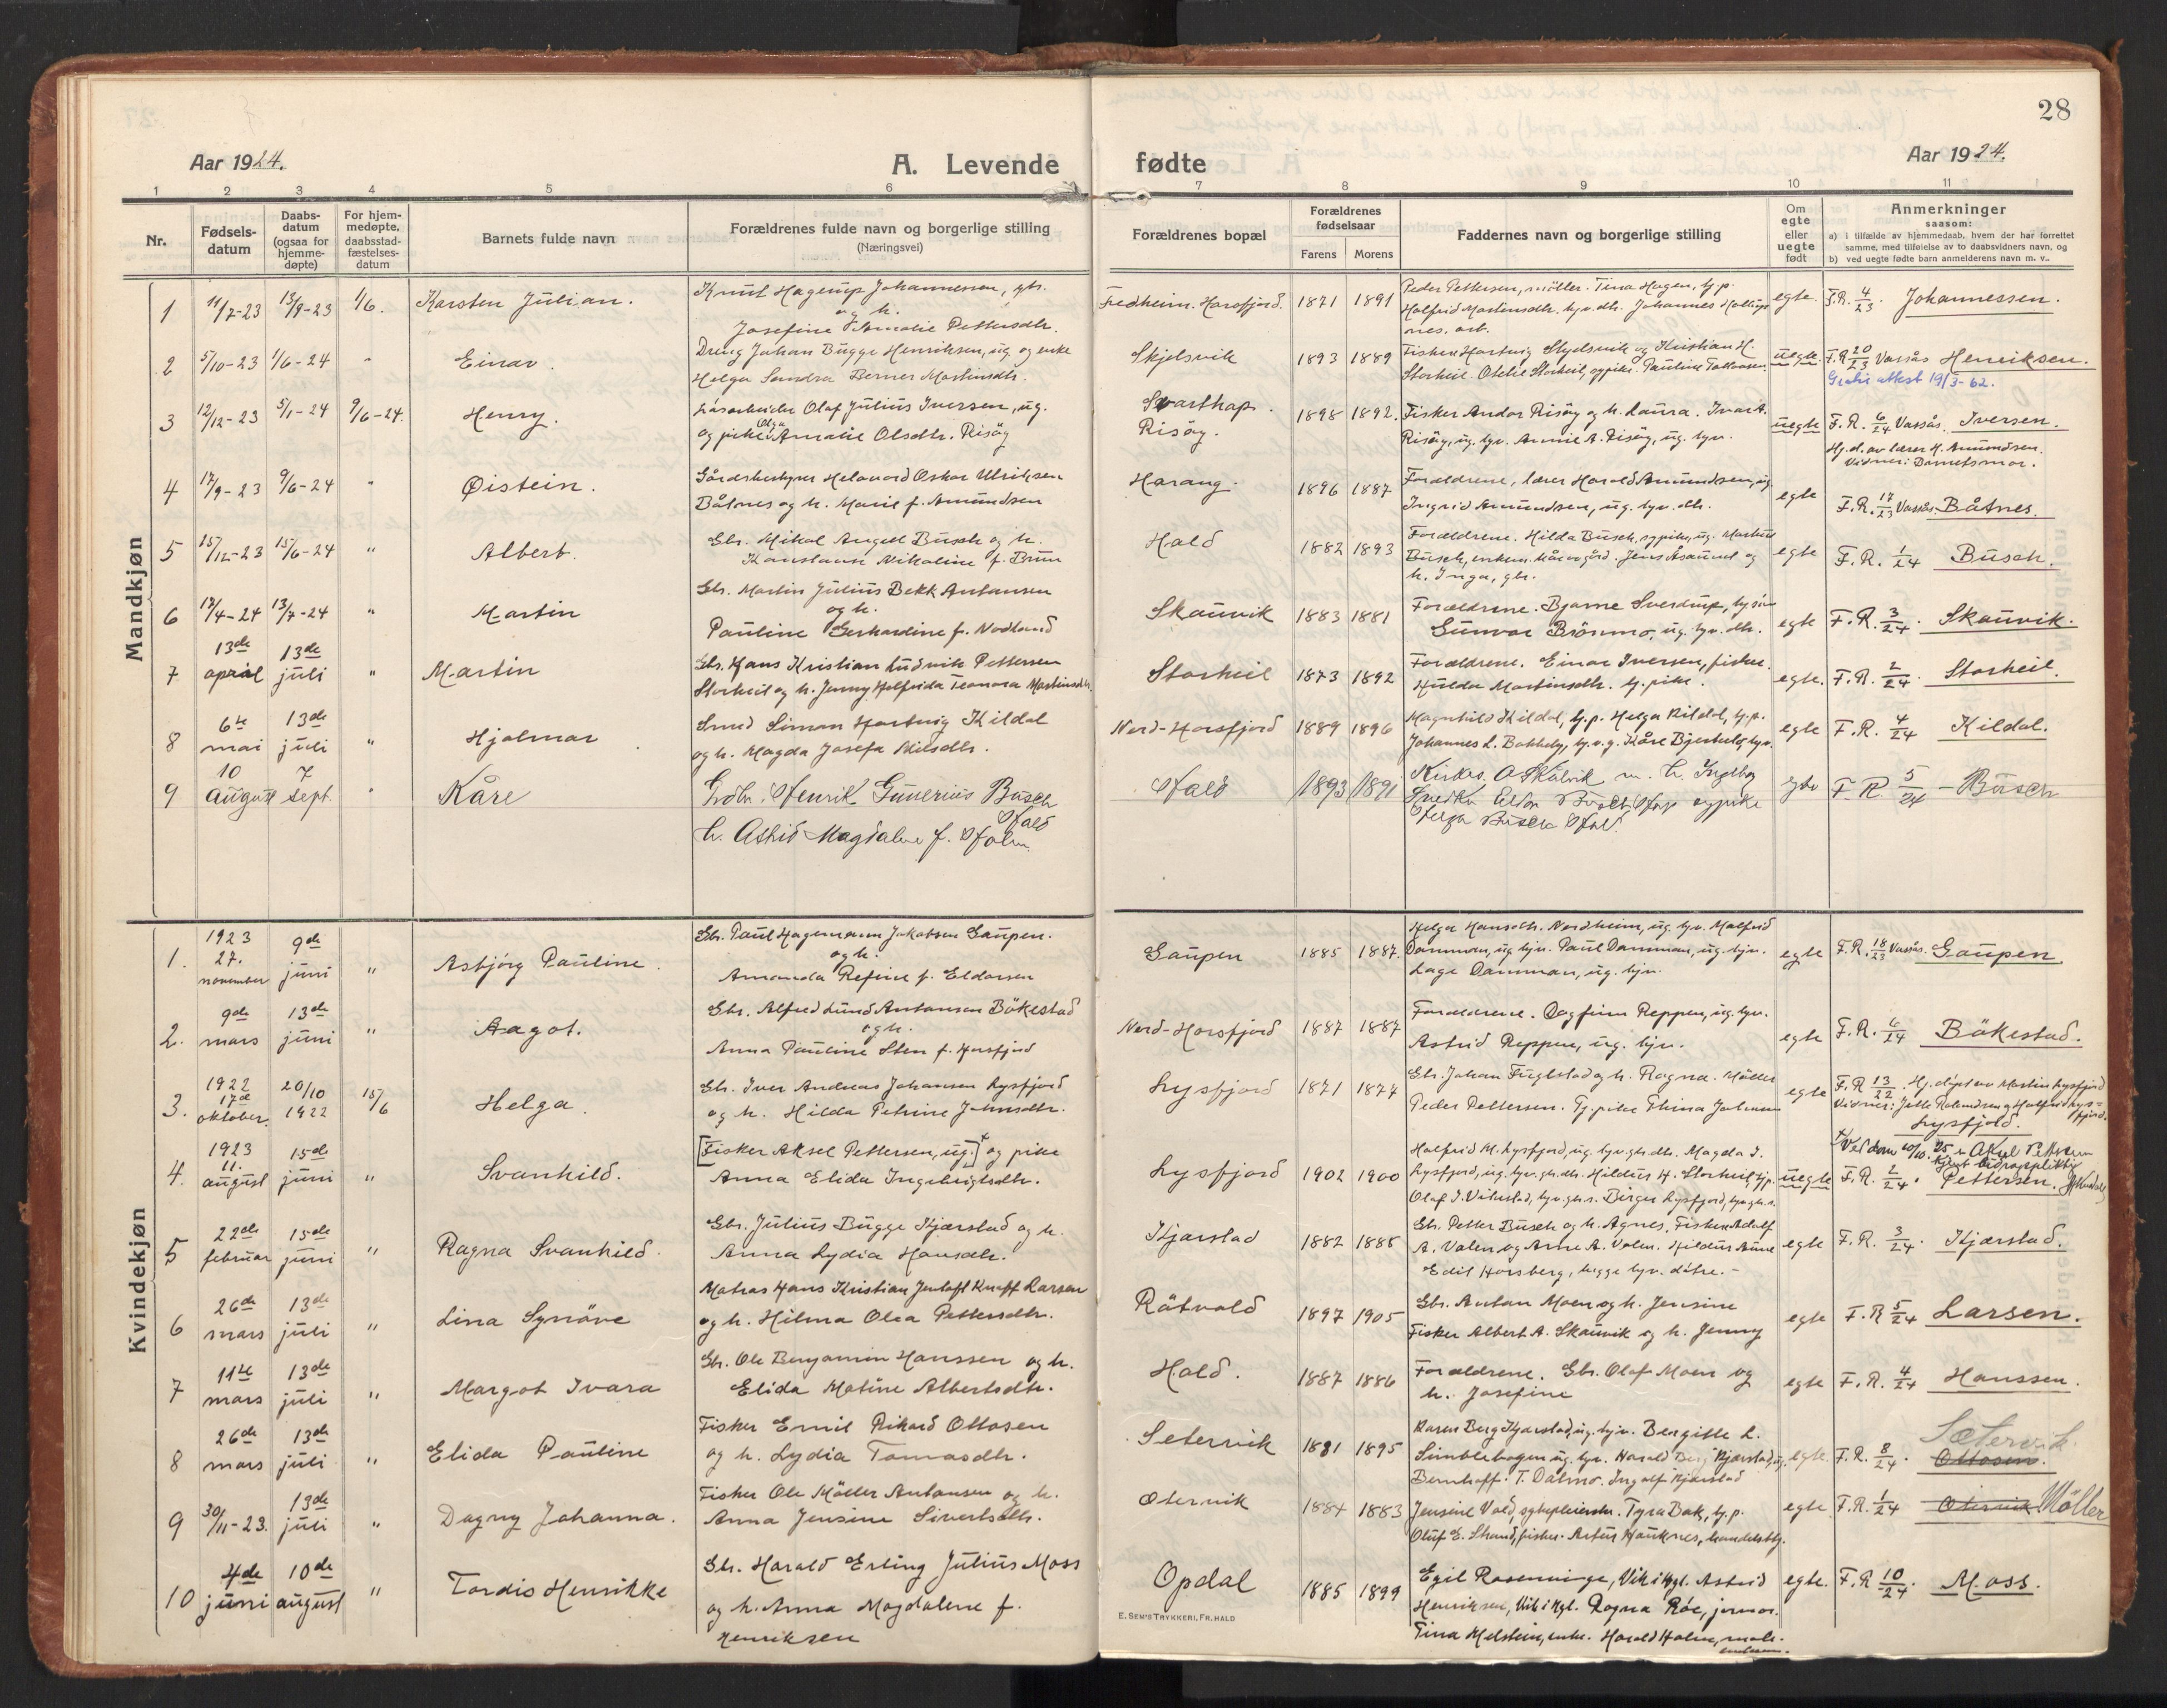 28
Aar 1924.
A. Levende fødte
Aar 1924.
1 2 3 4 5 6 7 8 9 10 11
Nr.
Fødsels-
datum
Daabs-
datum
(ogsaa for
hjemme-
døpte)
For hjem-
medøpte,
daabsstad-
fæstelses-
datum
Barnets fulde navn
Forældrenes fulde navn og borgerlige stilling
(Næringsvei)
Forældrenes bopæl
Forældrenes
fødselsaar
Farens Morens
Faddernes navn og borgerlige stilling
Om
egte
eller
uegte
født
Anmerkninger
saasom:
a) i tilfælde av hjemmedaab, hvem der har forrettet
samme, med tilføielse av to daabsvidners navn, og
b) ved uegte fødte barn anmelderens navn m. v..
Mandkjøn
1 11/7-23 13/9-23 1/6. Karsten Julian.
Knut Hagerup Johannessen, gbr.
og h.
Josefine Amalie Pettersdtr.
Fredheim. Horsfjord. 1871 1891
Peder Pettersen, møller. Tina Hagen, tj.p.
Halfrid Martensdtr. hjv. dtr. Johannes
nes. arb.
egte. F.R. 4/23. Johannessen.
2 5/10-23 1/6-24 " Einar.
Dreng Johan Bugge Henriksen, ug. og enke
Helga Sandra Berner Martinsdtr.
Skjelsvik 1893 1889
Fisker Hartvig Skjelsvik og Kristian H.
Storheil. Otelie Storheil, og pike Pauline
uegte F.R. 20/23 Vassås Henriksen.
Gratis attest 19/3-62.
3 12/12-23 5/1-24 9/6-24. Henry.
Løsarbeider Olaf Julius Iversen, ug.
og pike Olga Amalie Olsdtr. Risøy
Svarthap.
Risøy. 1898 1892.
Fisker Andor Risøy og h. Laura. Ivar A.
Risøy, ug. hjv. Annie A. Risøy, ug. hjv.
uegte F.R. 6/24 Vassås. Iversen.
Hj.d. av lærer H. Amundsen.
Vidner: Barnets mor.
4 17/9-23 9/6-24 " Øistein.
Gårdsbestyrer Helavord Oskar Ulriksen
Båtnes og h. Marie f. Amundsen
Harang. 1896 1887
Forældrene, lærer Harald Amundsen, ug
Ingrid Amundsen, ug. hjv. dtr.
egte F.R. 17/23 Vassås. Båtnes.
5 15/12-23 15/6-24 " Albert.
Gbr. Mikal Angell Busch og h.
Konstanse Nikoline f. Brun
Hald 1882 1893
Forældrene. Hilda Busch, sypike, ug. Martin
Busch, enkem. kårmand. Jens Åsamel og
h. Inga, gbr.
egte F.R. 1/24 Busch.
6 12/4-24 13/7-24 " Martin
Gbr. Martin Julius Bekk Antonsen
og h.
Pauline Gerhardine f. Nodland
Skauvik 1883 1881
Forældrene. Bjarne Sverdrup,
Gunvor Brönmo, ug. hjv. dtr.
egte F.R. 3/24. Skauvik.
7 13de april 13de juli " Martin
Gbr. Hans Kristian Ludvik Pettersen
Storheil og h. Jenny Halfrida Leonora Martinsdtr.
Storheil 1873 1892
Forældrene. Einar Iversen, fisker.
Hulda Martinsdtr. tj. pike.
egte. F.R. 2/24. Storheil.
8 6te mai 13de juli " Hjalmar
Smed Simon Hartvig Kildal
og h. Magda Josefa Nilsdtr.
Nord-Horsfjord 1889 1896
Magnhild Kildal, tj.p. Helga Kildal, tj.p.
Johannes L. Bakkeby, Kåre
egte F.R. 4/24 Kildal.
9 10 august 7 sept. " Kåre
Grdbr. Henrik Gunerius Busch
Hald
h. Astrid Magdalene f. Holm
Hald 1893 1891
Kirkes. O. Skålvik m. h. Ingeborg
Busch Hald sypike
Helga Busch Hald.
egte F.R. 5/24 - Busch
Kvindekjøn
1. 1923 27. november 9de juni " Asbjörg Pauline.
Gbr. Paul Hagemann Jakobsen Gaupen.
og h.
Amanda Regine f. Eldorsen
Gaupen 1885 1887.
Helga Hansdtr. Nordheim, ug. hjv. Malfrid
Damman, ug. hjv. Paul Damman, ug. hjv.
Lage Damman, ug. hjv.
egte F.R. 18/23 Vassås. Gaupen.
2. 9de mars 13de juni " Aagot.
Gbr. Alfred Lund Antonsen Bökestad
og h.
Anna Pauline Sten f. Horsfjord
Nord-Horsfjord 1887 1887
Forældrene. Dagfinn Reppen, ug. hjv.
Astrid Reppen, ug. hjv.
egte F.R. 6/24 Bökestad.
3. 1922 17de oktober. 20/10 1922 15/6 Helga.
Gbr. Iver Andreas Johansen Lysfjord
og h. Hilda Petrine Johnsdtr.
Lysfjord 1871 1874
Gbr. Johan Fuglstad og h. Ragna. Møller
Peder Pettersen. Tj. pike Thina Johnsen
egte F.R. 13/22. Hj. døpt av Martin Lysfjord
Vidner: Jette Rolandsen og Halfrid Lys=
fjord.
Lysfjord.
4. 1923 11. august 15de juni " Svanhild.
[Fisker Aksel Pettersen, ug.] og pike
Anna Elida Ingebrigtsdtr.
Lysfjord 1902 1900
Halfrid M. Lysfjord, ug. hjv. gb. dtr. Magda I.
Lysfjord, ug. hjv. gb. dtr. Hildur H. Storheil, tj.p.
Olaf I. Birger Lysfjord,
uegte Ved dom 10/10.25 er Aksel Pettersen
kjent bidragspliktig
F.R. 2/24. Pettersen.
5 22de februar 15de juni " Ragna Svanhild.
Gbr. Julius Bugge Kjærstad og h.
Anna Lydia Hansdtr.
Kjærstad 1882 1885
Gbr. Petter Busch og h. Agnes. Fisker Adolf
A. Valen og Arne A. Valen. Hildur Aune
Edit Horsberg, begge hjv. døtre.-
egte F.R. 3/24. Kjærstad.
6 26de mars 13de juli " Lina Synöve
Matros Hans Kristian Jentoft Knoff Larsen
og h. Hilma Olea Pettersdtr.
Råtvold 1897 1905
Gbr. Anton Moen og h. Jensine
Fisker Albert A. Skauvik og h. Jenny
egte F.R 5/24 Larsen.
7 11te mars 13de juli " Margot Ivara
Gbr. Ole Benjamin Hanssen og h.
Elida Matine Albertsdtr.
Hald. 1887 1886
Forældrene. Gbr. Olaf Moen og
h. Josefine
egte F.R. 4/24 Hanssen.
8 26de mars 13de juli " Elida Pauline
Fisker Emil Rikard Ottosen
og h. Lydia Tomasdtr.
Setervik 1881 1895
Karen Berg Kjærstad, ug. hjv. Bergitte L.
Simblebogen ug. hjv. Harald Berg Kjærstad, ug.
Bernhoff. T. Dalmo. Ingolf Kjærstad
egte. F.R. 8/24. Ottosen. Sætervik.
9 30/11-23. 13de juli " Dagny Johanna.
Fisker Ole Möller Antonsen og h.
Anna Jensine Sivertsdtr.
Otervik 1884 1883
Jensine Vold, sykepleierske. Tyra Bak, tj.p.
Oluf E. Strand, fisker. Artur Hauknes, handelsbtj.
egte F.R. 1/24 Otervik Möller
10 4de juni 10de august " Tordis Henrikke
Gbr. Harald Erling Julius Moss
og h. Anna Magdalene f.
Henriksen
Opdal 1885 1899
Egil Rosenvinge, Vik i Hgl. Astrid
Henriksen, Vik i Hgl. Ragna Röe, jormor.
Tina Melstein, enke. Harald Holm,
egte. F.R 10/24. Moss.
E. SEM'S TRYKKERI, FR.HALD